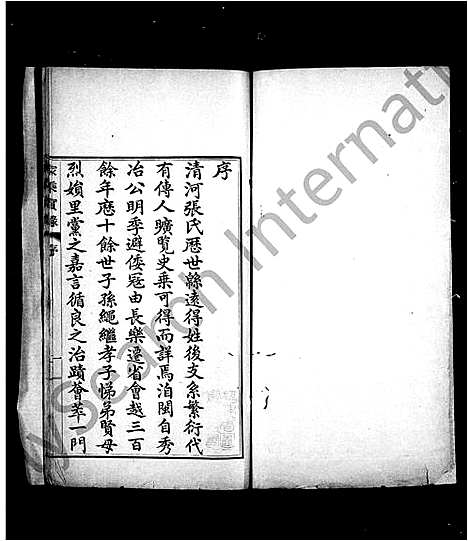 序
清河張氏歷世緜遠得姓後支系繁衍代
有傳人曠覽史乗可得而詳焉洎閩自秀
冶公明季避倭寇由長樂遷省會越三百
餘年應十餘世子孫繩繼孝子悌弟賢母
烈媍里黨之嘉言循良之治蹟薈萃一門
序
一
ySearch Internati